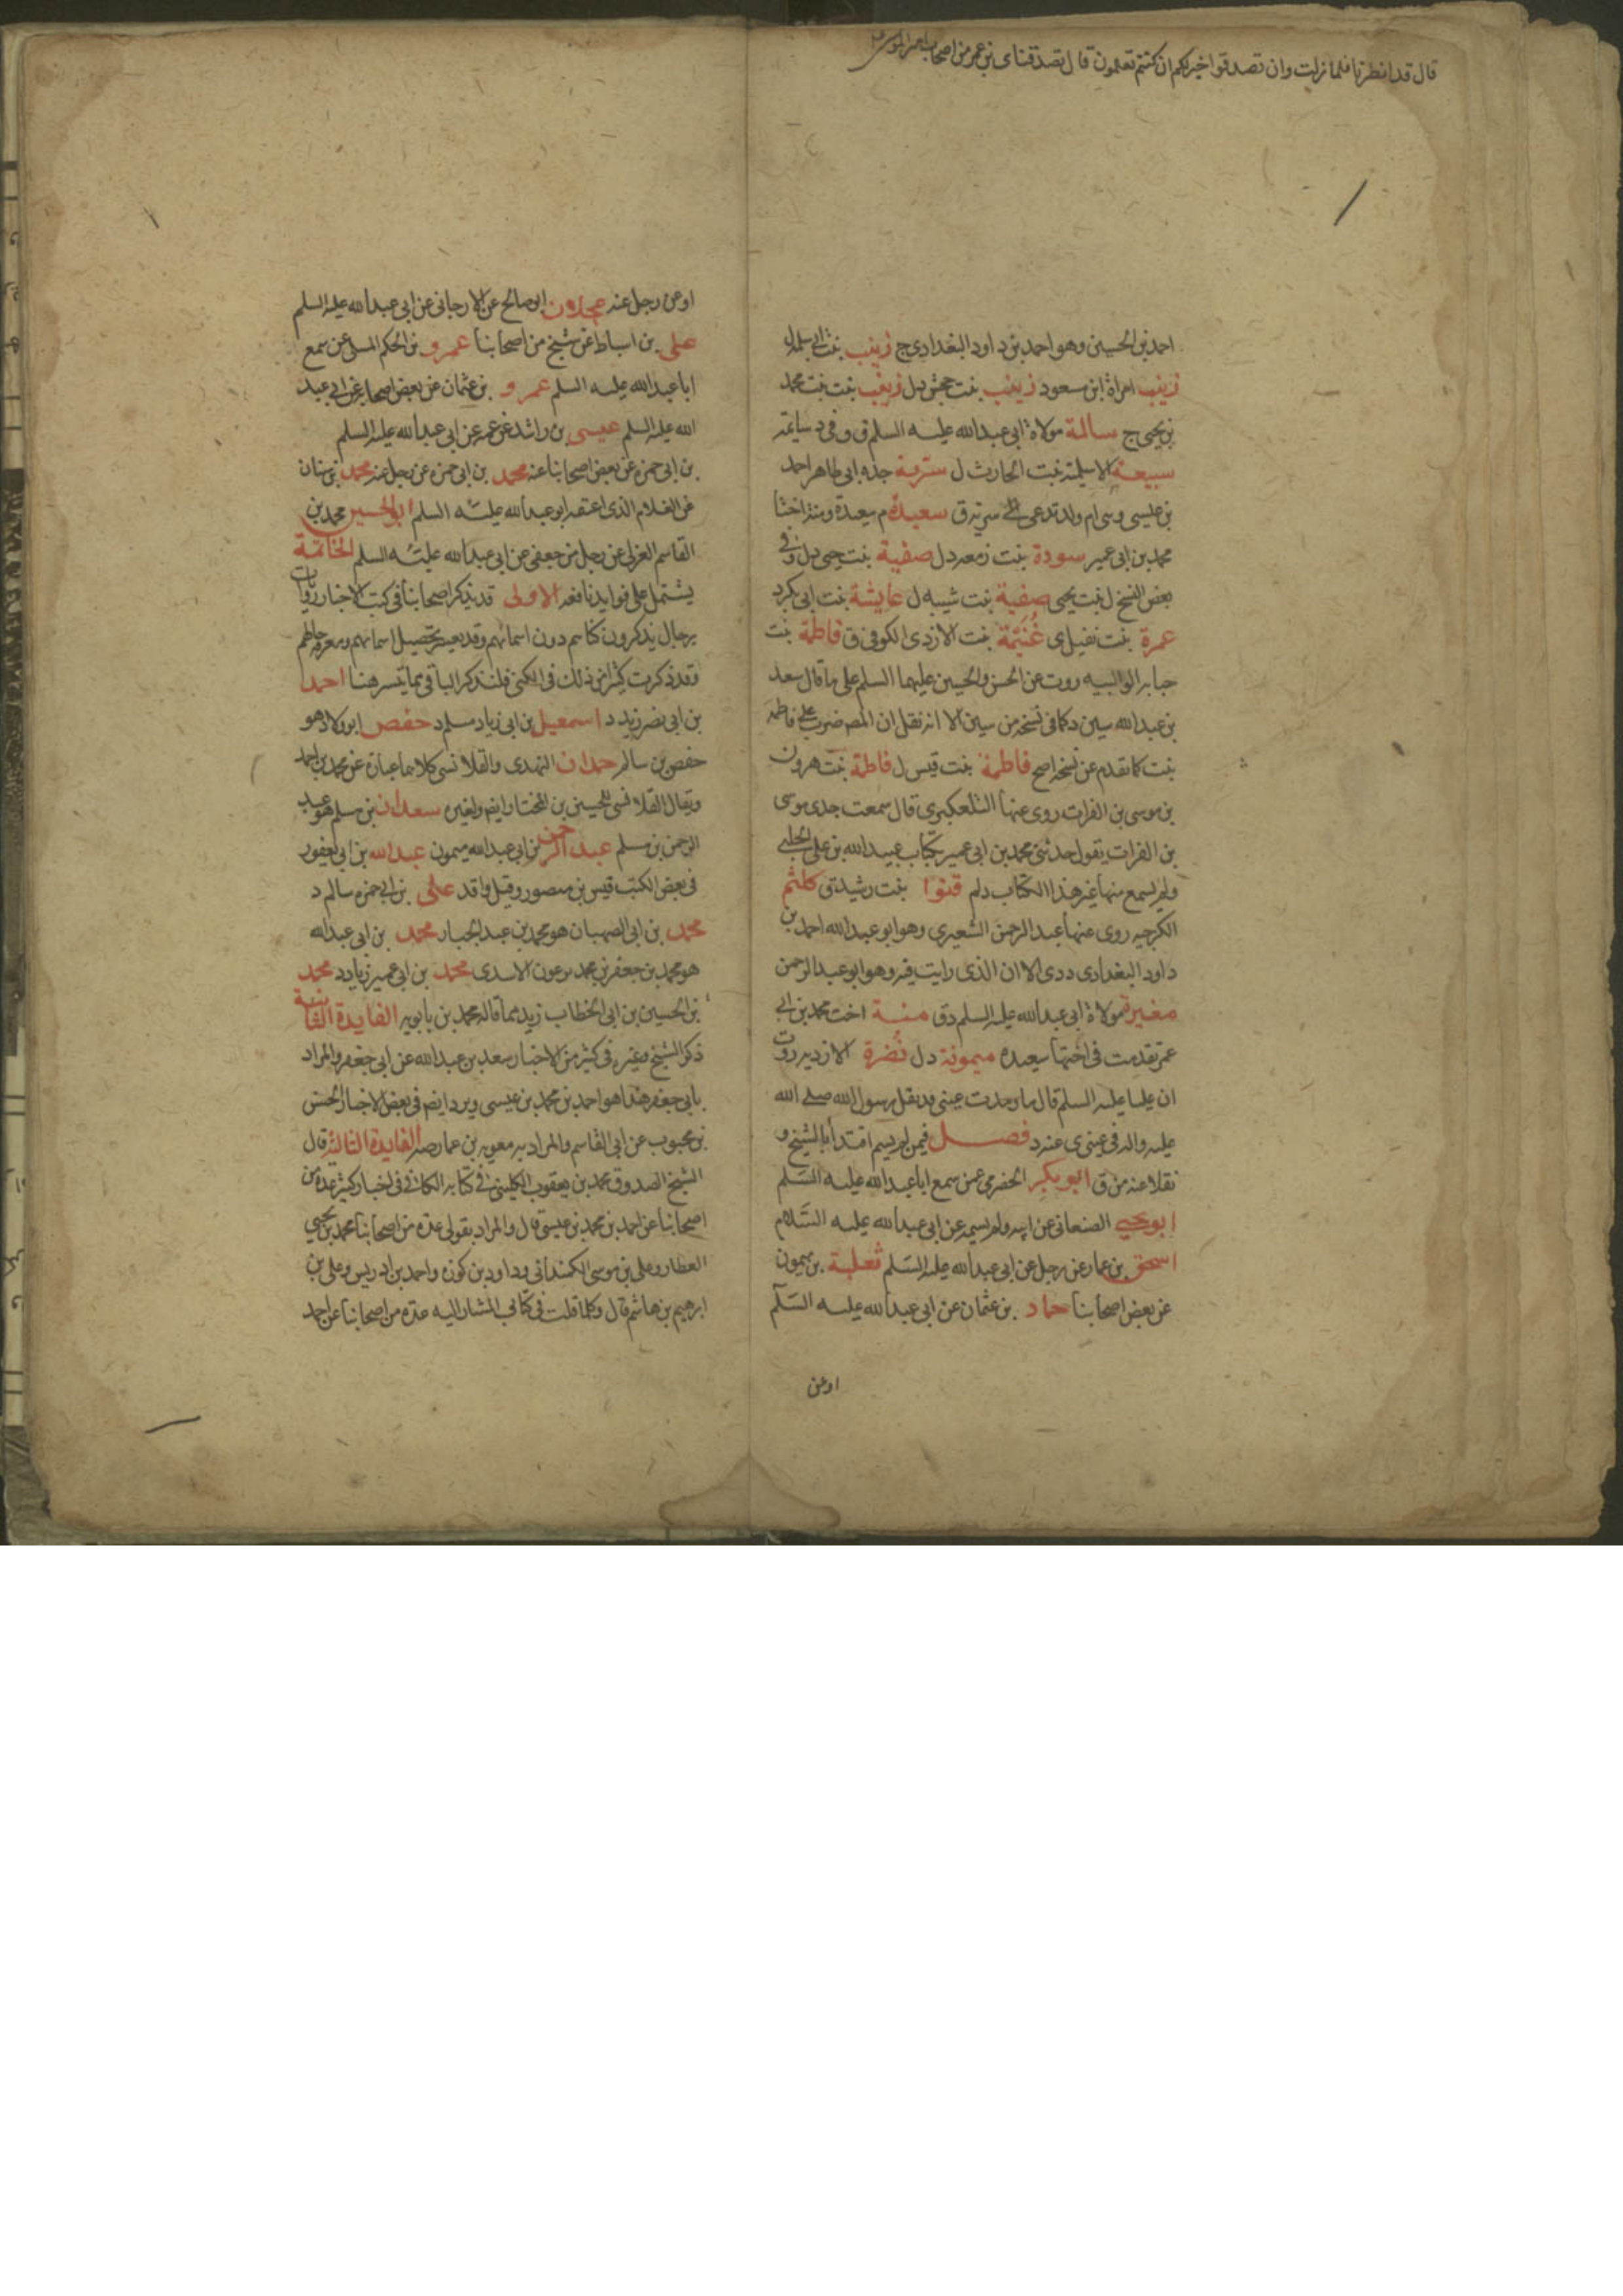 قال قد انظرنا فلما نزلت وان تصدقوا خير لكم ان كنتم تعلمون قال تصدقنا ى بن عمر من اصحاب
احمد بن الحسين وهو احمد بن داود البغدادى ج زينب بنت ابى سلمة ل
زينب امراة ابن مسعود زينب بنت جحش دل زينب بنت بنت محمد
بن يحيى ج سالمة مولاة ابى عبد الله عليه السلم ق وفى د سايمة
سبيعة الاسلمية بنت الحارث ل سترة جده ابى طاهر احمد
بن عيسى وسى ام ولد تدعى سرية ق سعيدة م سعيدة ومنة اختا
محمد بن ابى عمير سودة بنت زمعه دل صفية بنت حيى دل وفى
بعض النسخ ل بنت يحيى صفية بنت شيبه ل عايشة بنت ابى بكر د
عمرة بنت نفيل ى غنيمة بنت الازدى الكوفى ق فاطمة بنت
حبابه الوالبيه روت عن الحسن والحسين عليهما السلم على ما قال سعد
بن عبد الله سين د كما فى نسخه من سين الا انه نقل ان المصه ضرب على فاطمة
بنت كما تقدم عن نسخه اصح فاطمة بنت قيس ل فاطمة بنت هرون
بن موسى بن الفرات روى عنها التلعكبرى قال سمعت جدى موسى
بن الفرات يقول حدثنى محمد بن ابى عمير بكتاب عبيد الله بن على الحلبى
ولم يسمع منها غير هذا الكتاب د لم قنوا بنت رشيد ق كلثم
الكرخيه روى عنها عبد الرحمن الشعيرى وهو ابو عبد الله احمد بن
داود البغدادى د دى الا ان الذى رايت فيه وهو ابو عبد الرحمن
مغيرة مولاة ابى عبد الله عليه السلم د ق منة اخت محمد بن ابى
عمر تقدمت فى اختها سعيده ميمونة دل نضرة الازديه روت
ان عليا عليه السلم قال ما رمدت عينى مد تفل رسول الله صلى الله
عليه واله فى عينى ى عنه د فصل فيمن لم يسم اقتدأ بالشيخ و
نقلا عنه من ق ابو بكر الحضرمى عمن سمع ابا عبد الله عليه السلم
ابو يحيى الصنعانى عن ابيه ولم يسمه عن ابى عبد الله عليه السلام
اسحق بن عمار عن رجل عن ابى عبد الله عليه السلم ثعلبة بن ميمون
عن بعض اصحابنا حماد بن عثمان عن ابى عبد الله عليه السلم
اوعن
اوعن رجل عنه عجلان ابو صالح عن الارجانى عن ابى عبد الله عليه السلم
على بن اسباط عن شيخ من اصحابنا عمرو بن الحكم المسلى عن سمع
ابا عبد الله عليه السلم عمرو بن عثمان عن بعض اصحابه عن ابى عبد
الله عليه السلم عيسى بن راشد عن عمه عن ابى عبد الله عليه السلم
بن ابى حمزه عن بعض اصحابنا عنه محمد بن ابى حمزه عن رجل عنه محمد بن سنان
عن الغلام الذى اعتقه ابو عبد الله عليه السلم ابو الحسين محمد بن
القاسم العزلى عن رجل من جعفى عن ابى عبد الله عليه السلم الخاتمة
يشتمل على فوايد نافعه الاولى قد يذكر اصحابنا فى كتب الاخبار روايات
برجال يذكرون كناهم دون اسمائهم وقد يعسر تحصيل اسمائهم ومعرفة حالهم
وقد ذكرت كثيرا من ذلك فى الكنى فلنذكر الباقى مما تيسر هنا احمد
بن ابى نصر زيد د اسمعيل بن ابى زياد مسلم د حفص ابو ولاد هو
حفص بن سالم حمدان النهدى والقلانسى كلاهما عبارة عن محمد بن احمد
ويقال القلانسى للحسين بن المختار ايضا ولغيره سعدان بن مسلم هو عبد
الرحمن بن مسلم عبد الرحمن بن ابى عبد الله ميمون عبد الله بن ابى يعفور
فى بعض الكتب قيس بن منصور وقيل واقد على بن ابى حمزه سالم د
محمد بن ابى الصهبان هو محمد بن عبد الجبار محمد بن ابى عبد الله
هو محمد بن جعفر بن محمد بن عون الاسدى محمد بن ابى عمير زياد د محمد
بن الحسين بن ابى الخطاب زيد مما قاله محمد بن بابويه الفايدة الثانية
ذكر الشيخ وغيره فى كثير من الاخبار سعد بن عبد الله عن ابى جعفر والمراد
بابى جعفر هذا هو احمد بن محمد بن عيسى ويرد ايضا فى بعض الاخبار الحسن
بن محبوب عن ابى القاسم والمراد به معويه بن عمار صه الفايدة الثالثة قال
الشيخ الصدوق محمد بن يعقوب الكلينى فى كتابه الكافى فى اخبار كثيره عدة من
اصحابنا عن احمد بن محمد بن عيسى قال والمراد بقولى عدة من اصحابنا محمد بن يحيى
العطار وعلى بن موسى الكمندانى وداود بن كوزه واحمد بن ادريس وعلى بن
ابرهيم بن هاشم قال وكلما قلت فى كتابى المشار اليه عدة من اصحابنا عن احمد